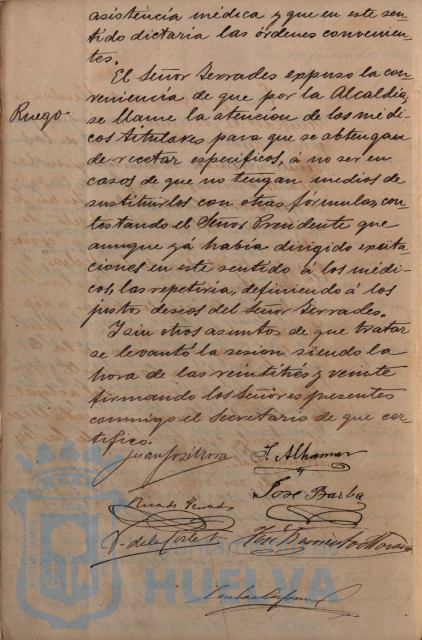 asistencia médica y que en este sen-
tido dictaria las órdenes convenien-
tes.
Ruego.
El Señor Terrades expuso la con-
veniencia de que por la Alcaldia,
se llame la atencion de los médi-
cos titulares para que se abtengan
de recetar específicos, á no ser en
casos de que no tengan medios de
sustituirlos con otras fórmulas, con-
testando el Señor Presidente que
aunque yá habia dirigido exita-
ciones en este sentido á los médi-
cos, las repetiria, definiendo á los
justo deseos del Señor Terrades.
Y sin otros asuntos de que tratar
se levantó la sesion siendo la
hora de las veintitrés y veinte
firmando los Señores presentes
conmigo el Secretario de que cer-
tifico.
Juan José
Alhamar
José Barba
Ricardo
de la Corte
José Barriento
HUELVA